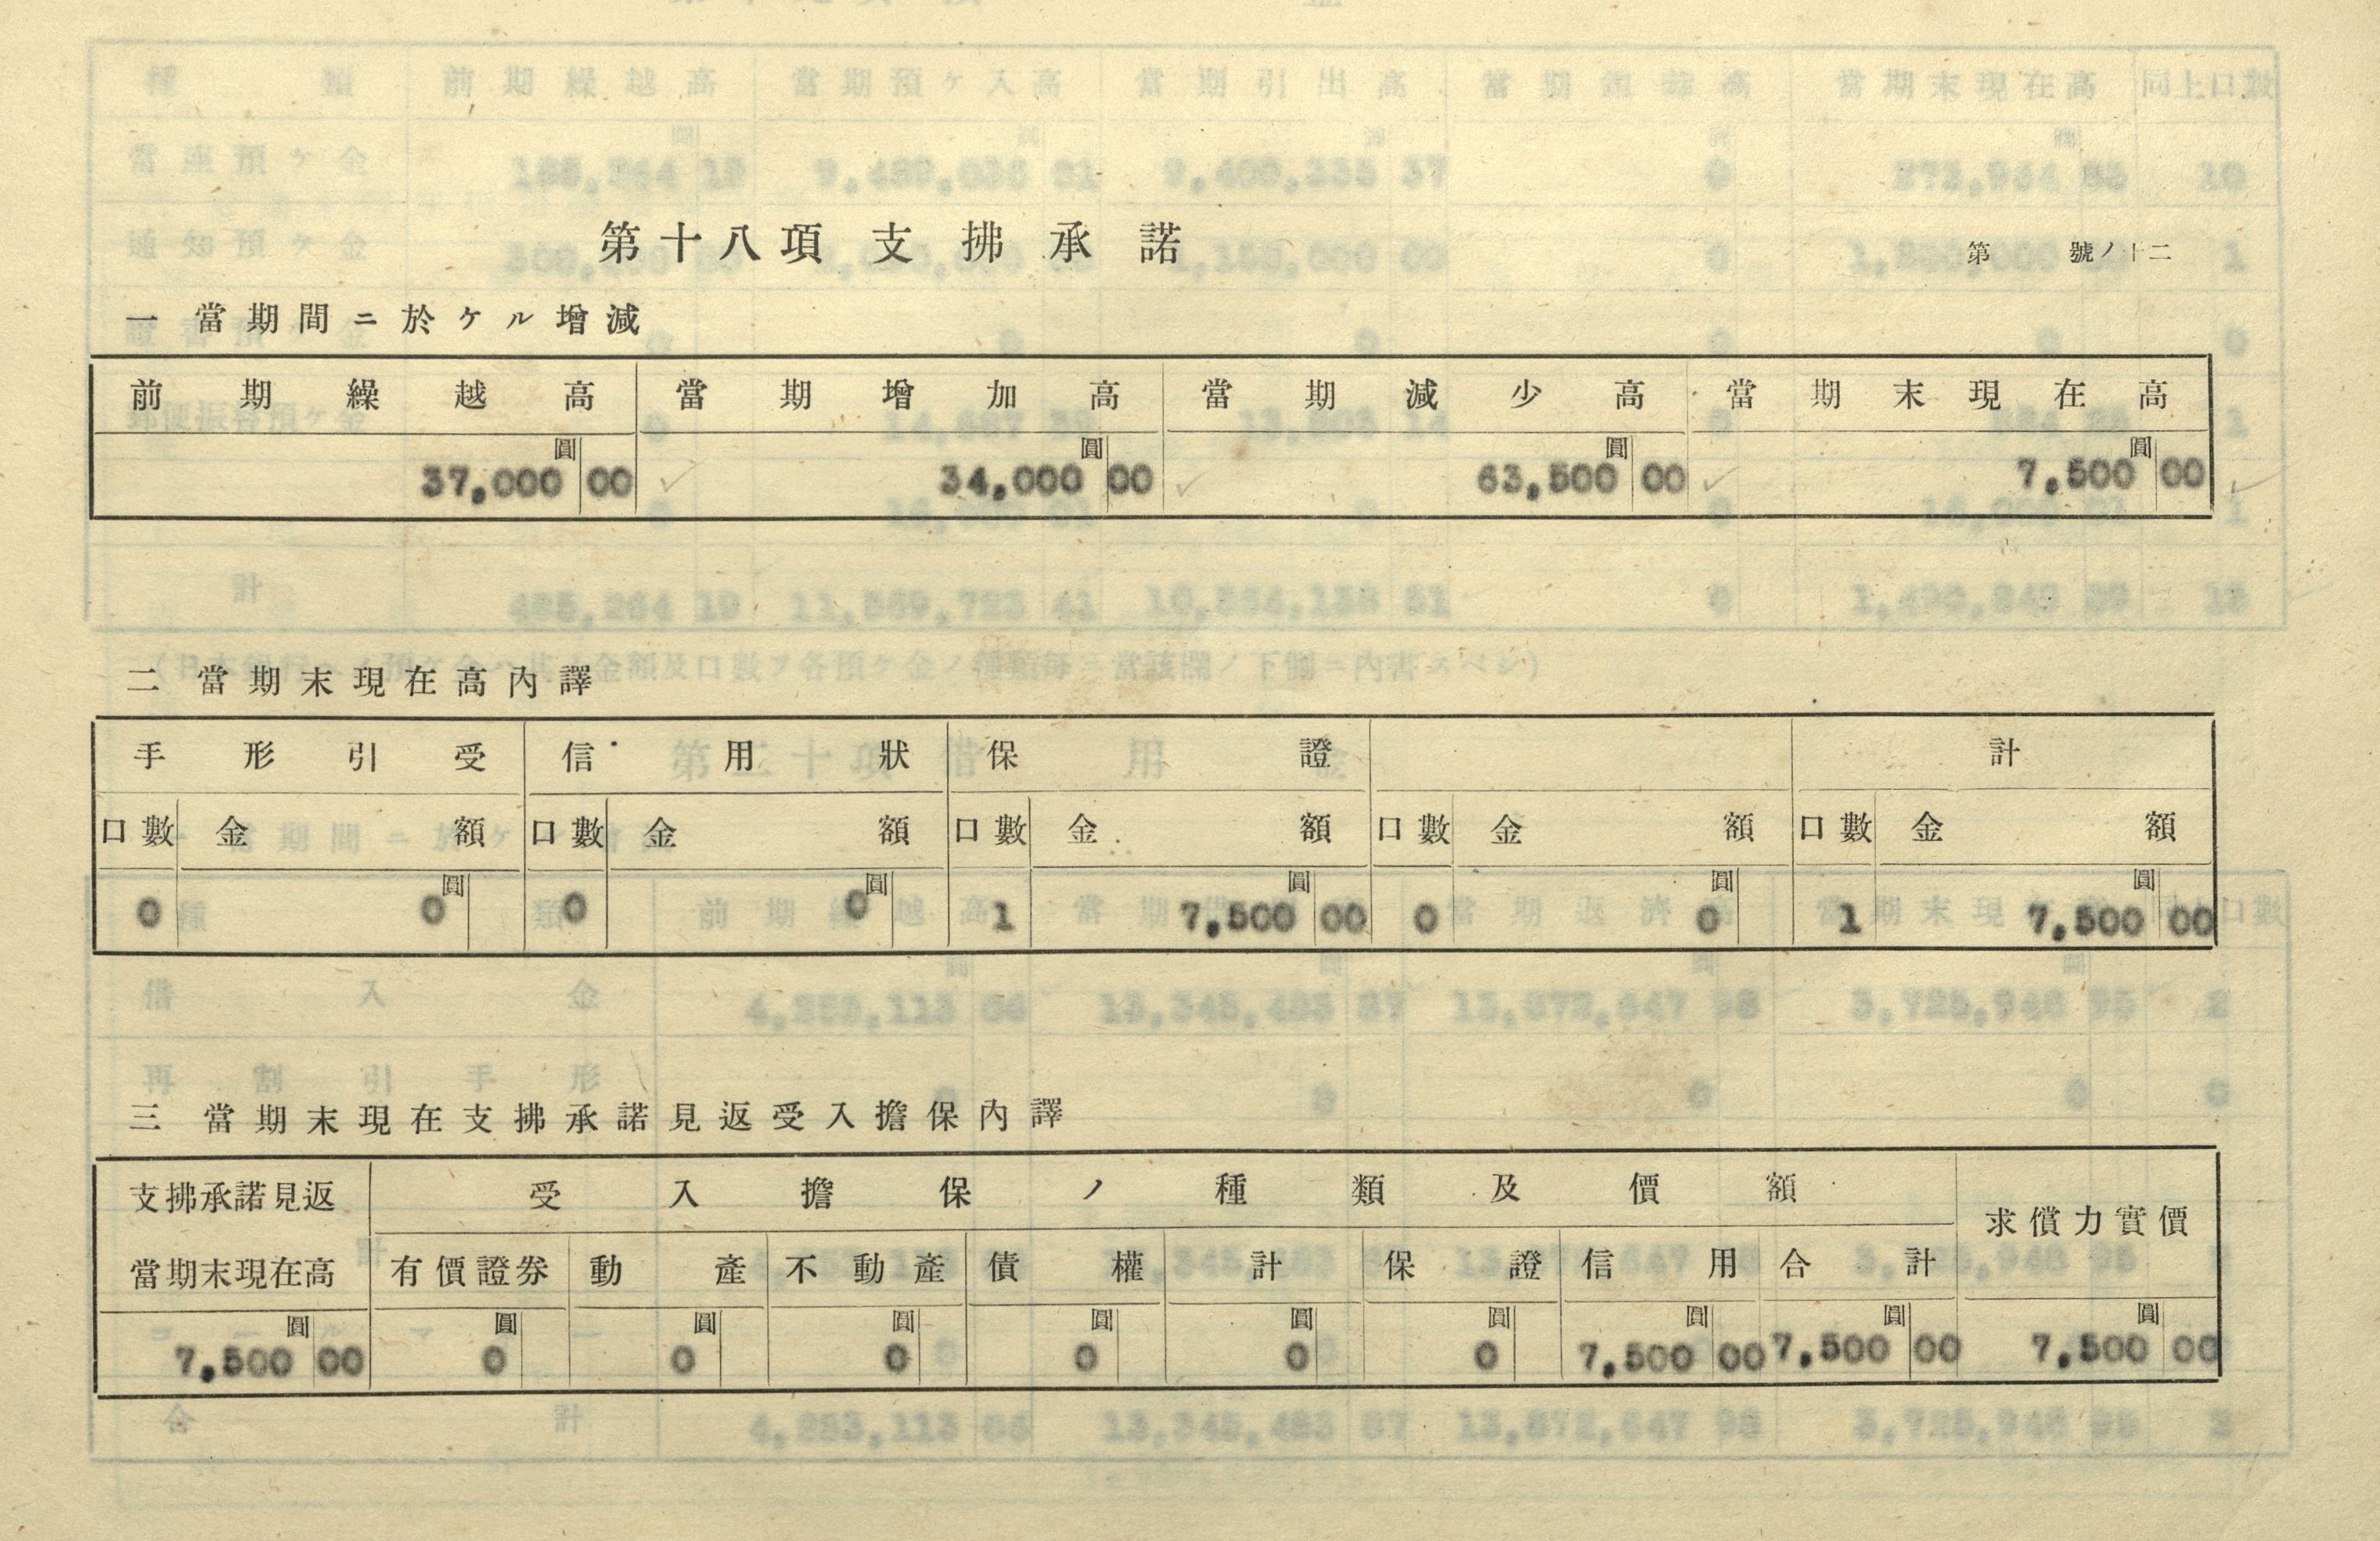 第十八項 支拂承諾 第 號ノ十二
一 當期間ニ於ケル增減
前期繰越高 當期增加高 當期減少高 當期末現在高
圓 圓 圓 圓
37,000 00 34,000 00 63,500 00 7,500 00
二 當期末現在高內譯
手形引受 信用狀 保證 計
口數 金額 口數 金額 口數 金額 口數 金額 口數 金額
圓 圓 圓 圓 圓
0 0 0 0 1 7,500 00 0 0 1 7,500 00
三 當期末現在支拂承諾見返受入擔保內譯
支拂承諾見返 受入擔保ノ種類及價額 求償力實價
當期末現在高 有價證券 動產 不動產 債權 計 保證 信用 合計
圓 圓 圓 圓 圓 圓 圓 圓 圓 圓
7,500 00 0 0 0 0 0 0 7,500 00 7,500 00 7,500 00